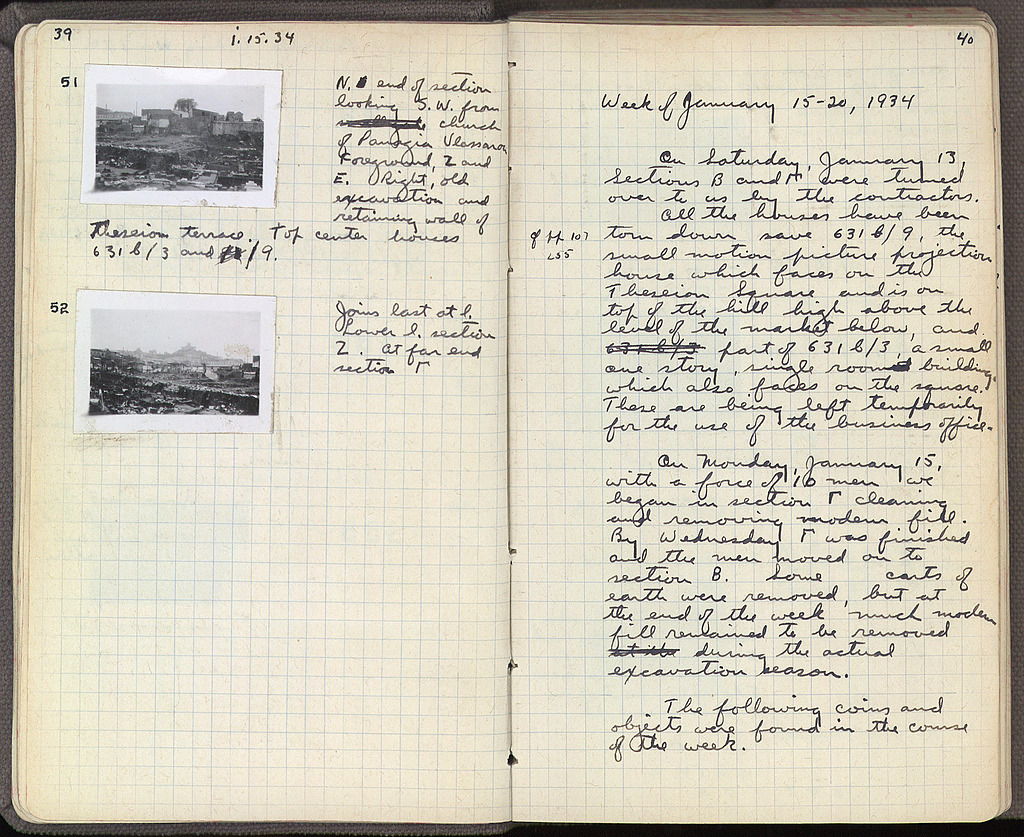 39
i.15.34
51
N. end of section
looking S.W. from
church
of Panagia Vlassarou
Foreground, Z and
E. Right, old
excavation and
retaining wall of
Theseion terrace. Top center houses
631 b/3 and /9.
52
Joins last at l.
Lower l. section
Z. At far end
section Γ
40
Week of January 15-20, 1934
On Saturday, January 13,
Sections B and Γ were turned
over to us by the contractors.
All the houses have been
torn down save 631 b/9, the
cf pp 107
255
small motion picture projection
house which faces on the
Theseion Square and is on
top of the hill high above the
level of the market below, and
631 b/3 part of 631 b/3, a small
one story, single room building,
which also faces on the square.
These are being left temporarily
for the use of the business office.
On Monday, January 15,
with a force of 10 men we
began in section Γ cleaning
and removing modern fill.
By Wednesday Γ was finished
and the men moved on to
section B. Some carts of
earth were removed, but at
the end of the week much modern
fill remained to be removed
during the actual
excavation season.
The following coins and
objects were found in the course
of the week.